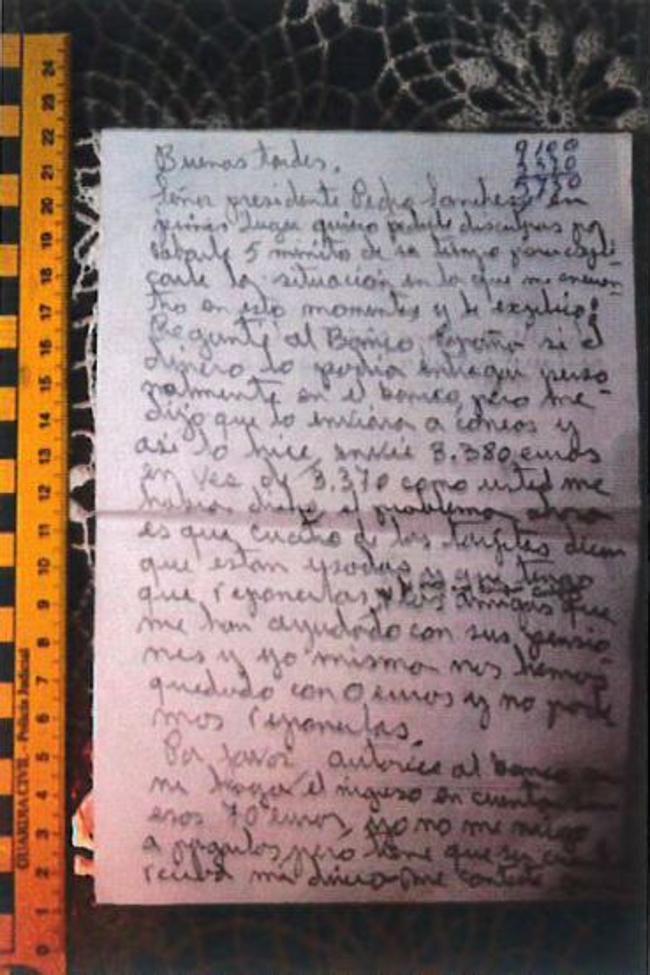 9100
3370
5730
Buenas tardes.
Señor presidente Pedro Sanchez, en
primer lugar quiero pedirle disculpas por
robarle 5 minitos de su tiempo para expli-
carle la situación en la que me encuen-
tro en esto momentos y le explico:
Pregunté al Banco España si el
dinero lo podia entregar perso-
nalmente en el banco, pero me
dijo que lo enviara a correos y
asi lo hice, envié 3.380 euros
en vez de 3.370 como usted me
habia dicho, el problema ahora
es que cuatro de las targetas dicen
que estan usadas y que tengo
que reponerlas, las amigas que
me han ayudado con sus pensio
nes y yo misma nos hemos
quedado con 0 euros y no pode
mos reponerlas.
Por favor autorice al banco
me haga el ingreso en cuenta
esos 70 euros, yo no me niego
a pagarlos, pero tiene que ser
reciba mi dinero, me conteste
24 23 22 21 20 19 18 17 16 15 14 13 12 11 10 9 8 7 6 5 4 3 2 1 0
GUARDIA CIVIL - Policía Judicial